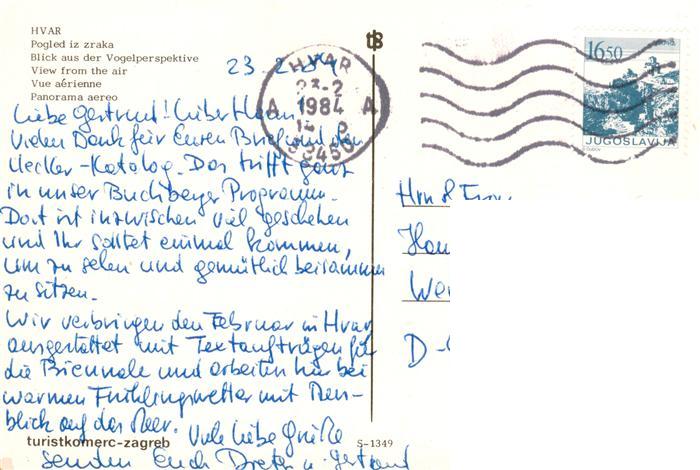 HVAR
Pogled iz zraka
Blick aus der Vogelperspektive
View from the air
Vue aérienne
Panorama aereo
23.2.84
Liebe Gertraud! Lieber
Vielen Dank für Euren Brief und den
Uecker-Katalog. Das trifft ganz
in unser Buchberger Programm.
Dort ist inzwischen viel geschehen
und Ihr solltet einmal kommen,
um zu sehen und gemütlich beisammen
zu sitzen.
Wir verbringen den Februar in Hvar
ausgestattet mit Textaufträgen für
die Biennale und arbeiten hier bei
warmen Frühlingswetter mit
blick auf das Meer. Viele liebe Grüße
senden Euch Dieter u. Gertraud
turistkomerc-zagreb
S-1349
tB
HVAR
23-2
1984
A A
58450
1650
JUGOSLAVIJA
Hrn & Frau
D-